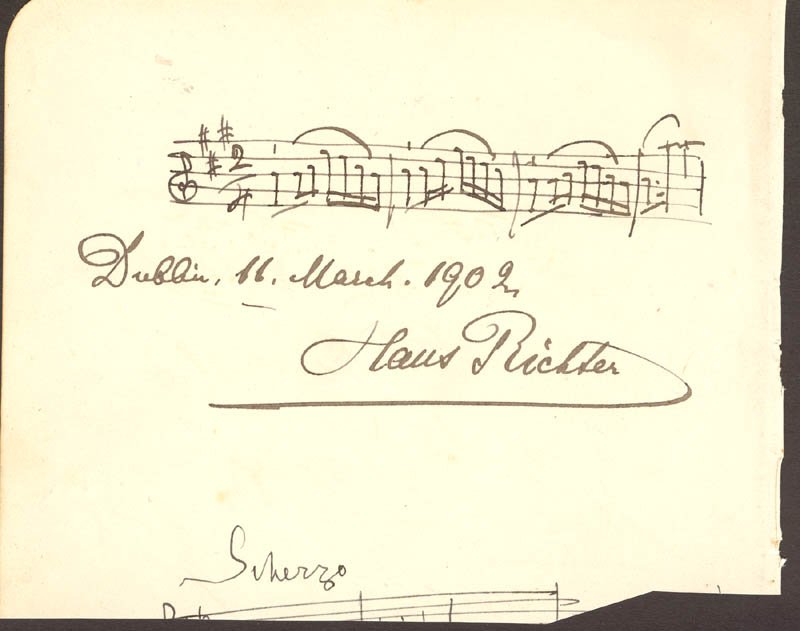 2
4
Dublin, 11. March. 1902
Hans Richter
Scherzo